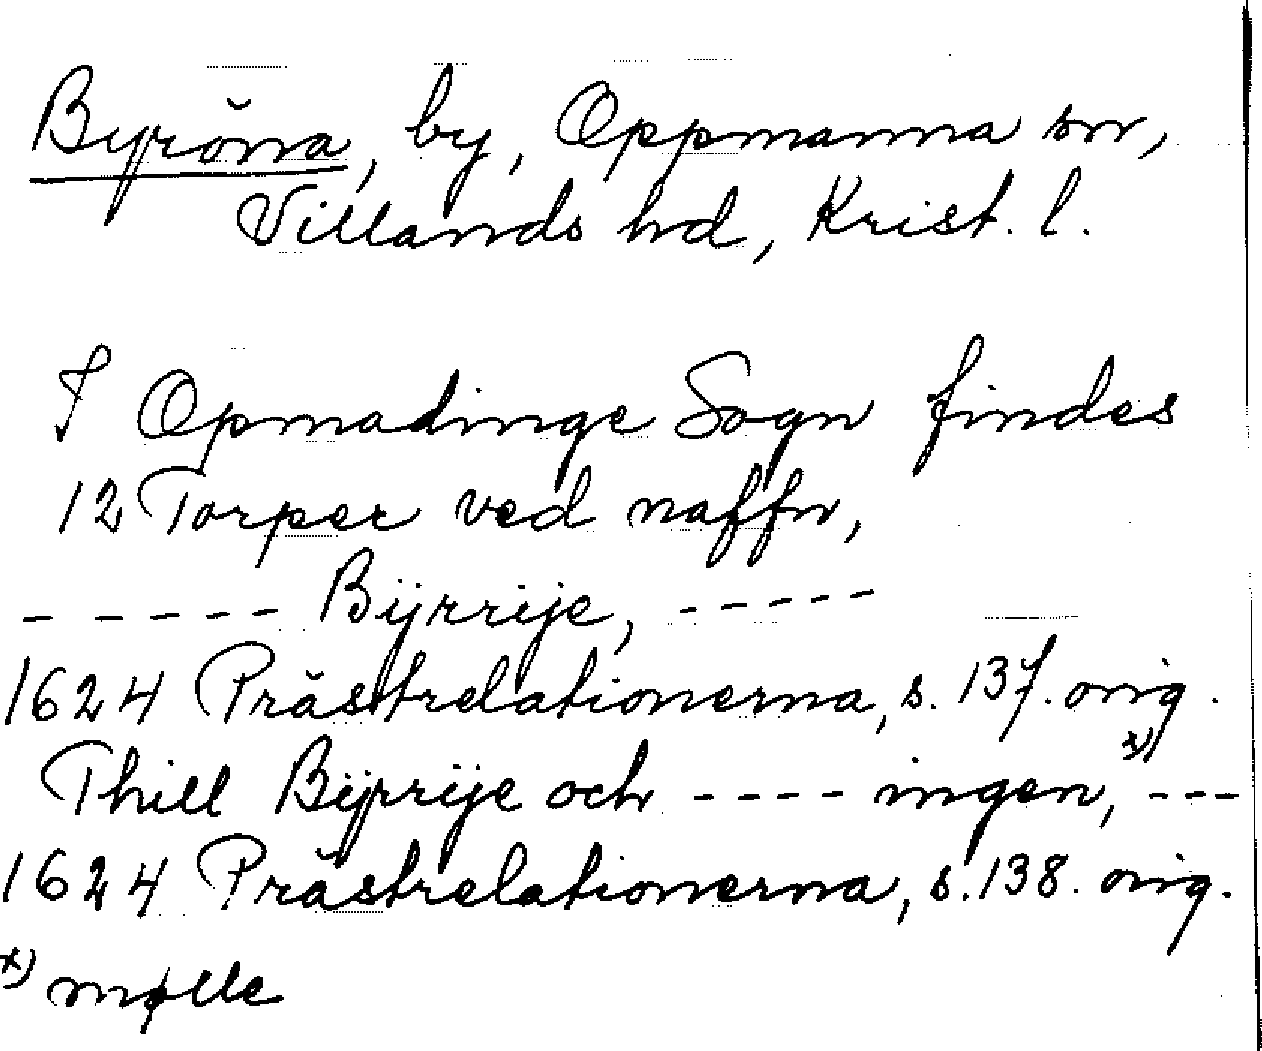 Byröna, by, Oppmanna sn,
Villands hd, Krist. l.
I Opmadinge Sogn findes
12 Torper ved naffn,
- - - - - Bijrrije, - - - - -
1624 Prästrelationerna, s. 137. orig.
Thill Bijrrije och - - - - ingen, x) - - -
1624 Prästrelationerna, s. 138. orig.
x) mølle